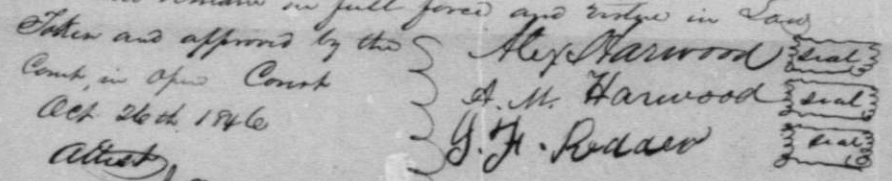 remain in full force and virtue in Law
Taken and approved by the
Court, in open Court
Oct 26th 1846
Attest
Alex Harwood seal
A. M. Harwood seal
G. F. seal